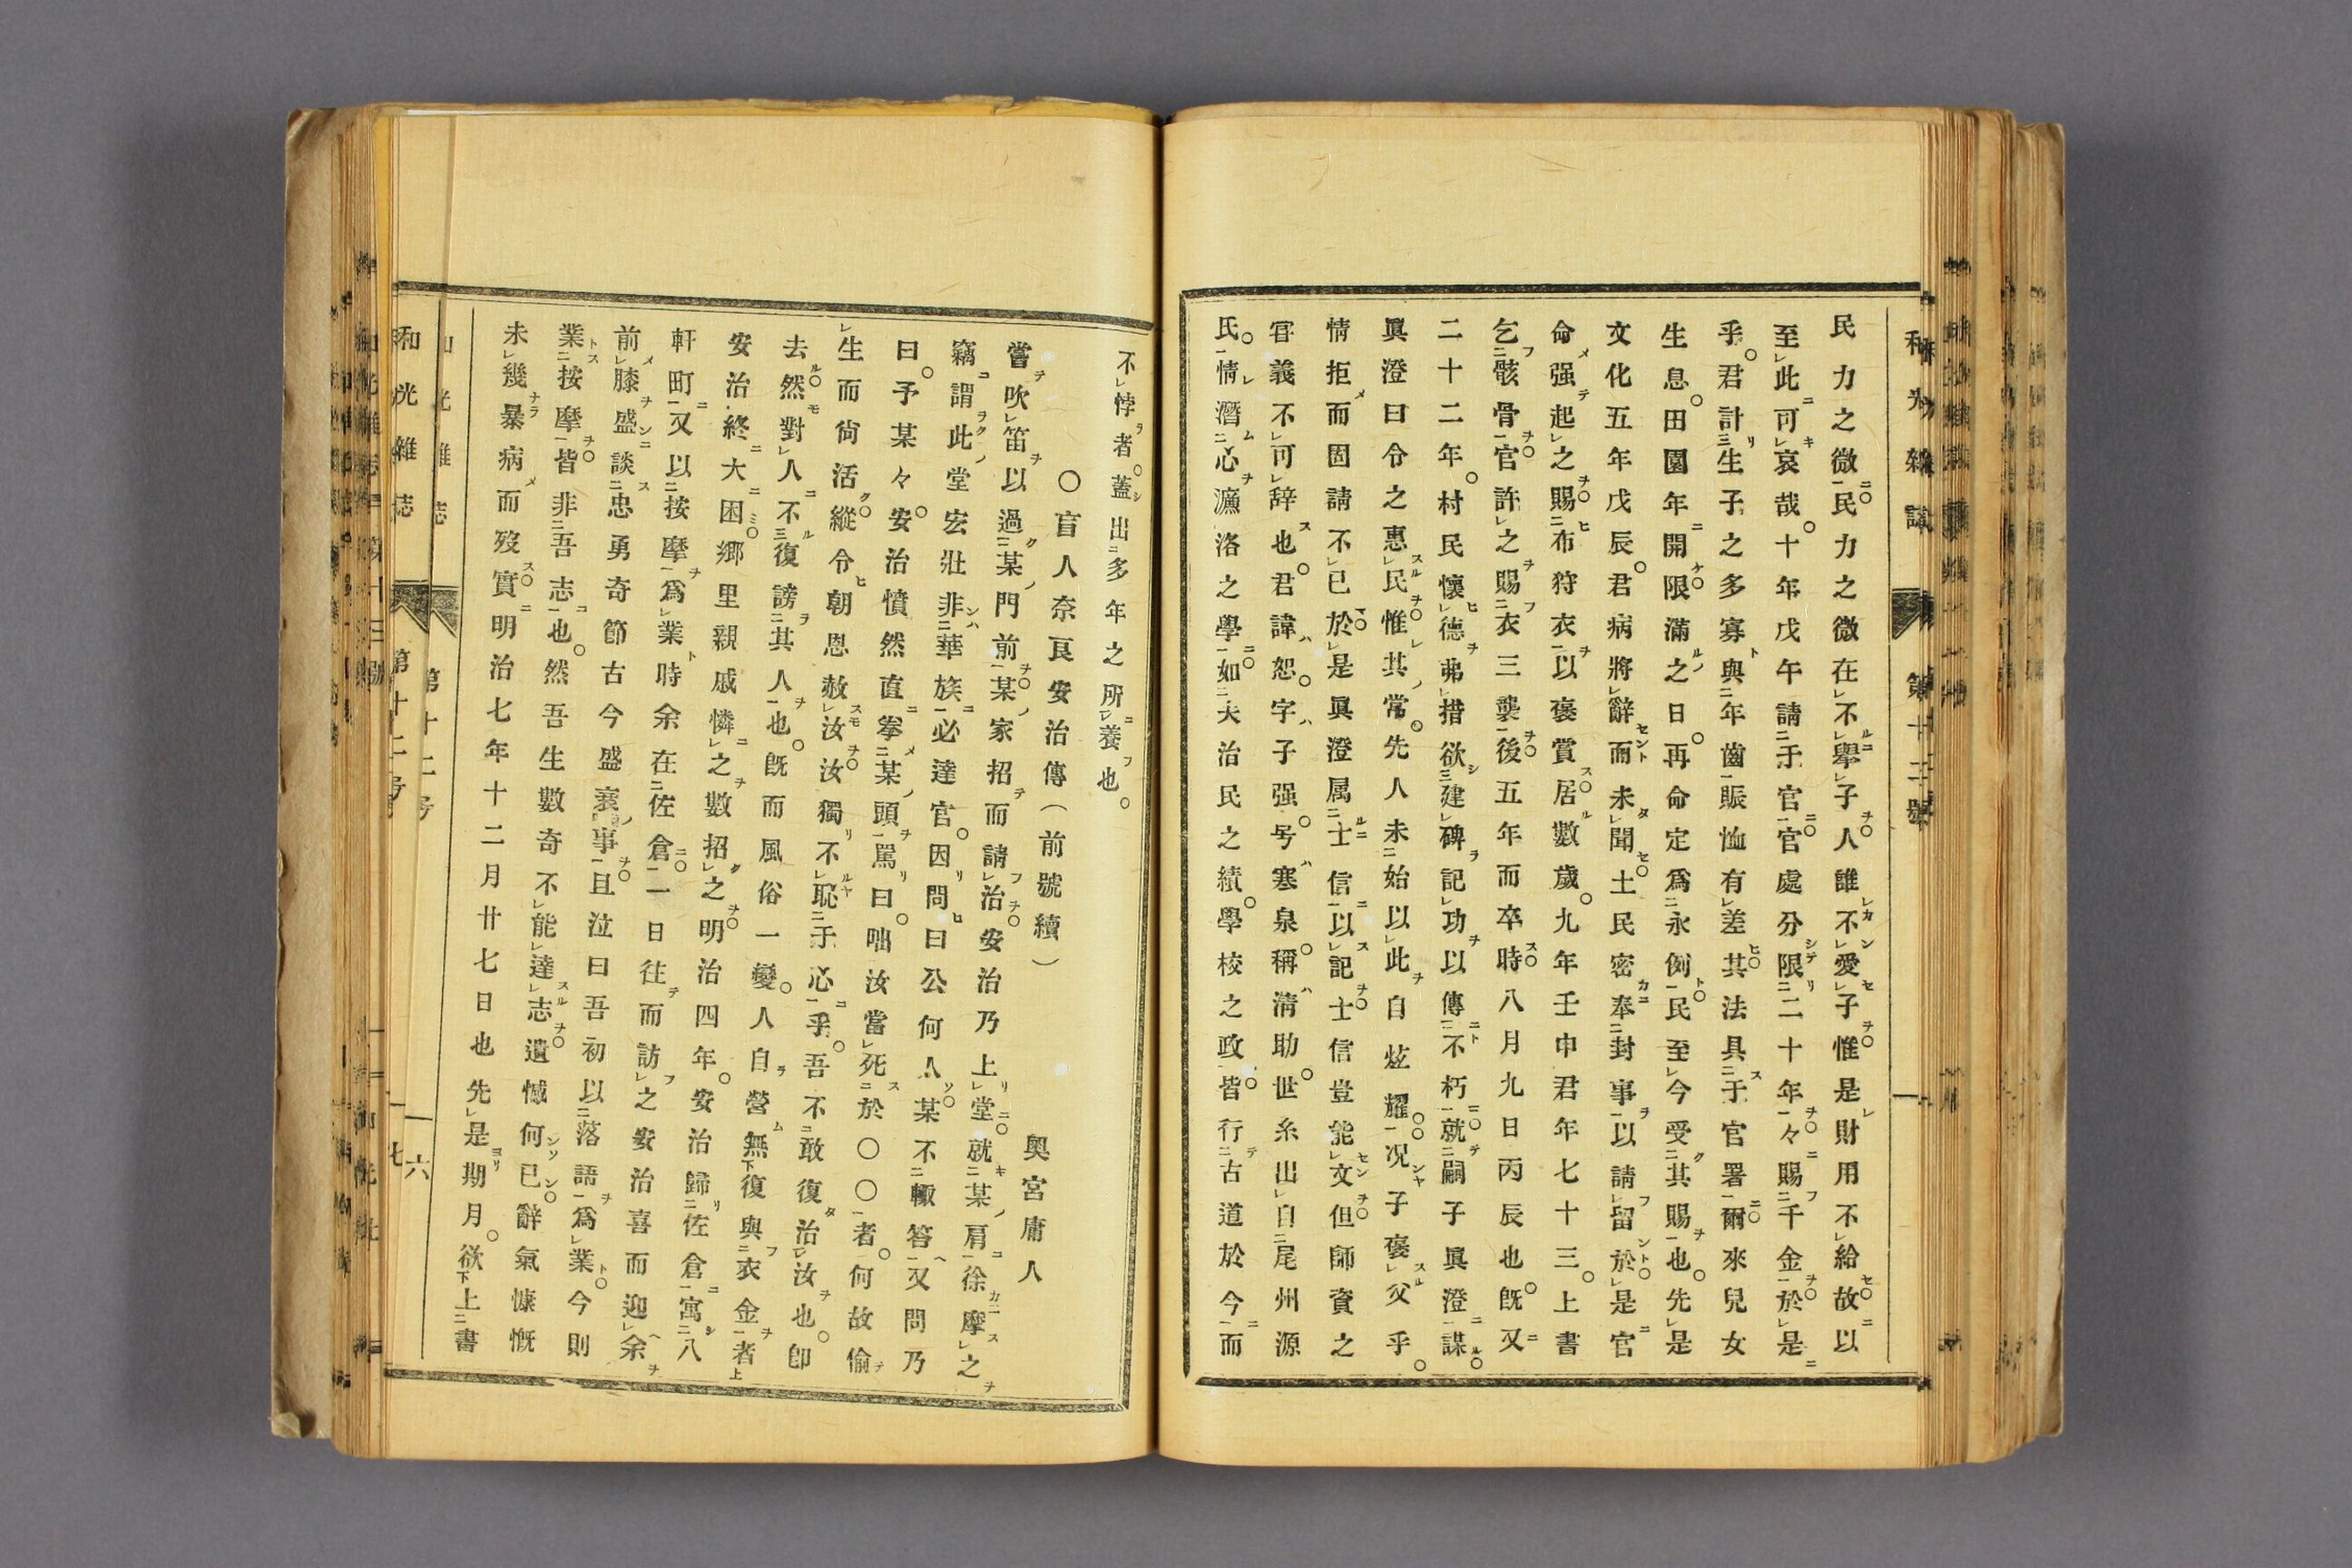 民力之微民力之微在不擧子人誰不愛子惟是財用不給故以
至此可哀哉。十年戊午請于官官處分限二十年々賜千金於是
乎。君計生子之多寡與年齒賑恤有差其法具于官署爾來兒女
生息。田園年開限滿之日。再命定爲永例民至今受其賜也。先是
文化五年戊辰。君病將辭而未聞士民密奉封事以請留於是官
命强起之賜布狩衣以褒賞居數歲。九年壬申君年七十三。上書
乞骸骨官許之賜衣三襲後五年而卒時八月九日丙辰也。旣又
二十二年。村民懷德弗措欲建碑記功以傳不朽就嗣子眞澄謀
眞澄曰令之惠民惟其常。先人未始以此自炫耀。况子褒父乎。
情拒而固請不已於是眞澄属士信以記士信豈能文但師資之
容義不可辞也。君諱恕。字子强。号寒泉。稱淸助。世糸出自尾州源
氏。情潛心濂洛之學如夫治民之績。學校之政皆行古道於今而
不悖者。蓋出多年之所養也。
〇盲人奈良安治傳（前號續）
奥宮庸人
嘗吹笛以過某門前某家招而請治安治乃上堂就某肩徐摩之
竊謂此堂宏壯非華族必達官。因問曰公何人某不輙答又問乃
曰。予某々。安治憤然直拳某頭罵曰。咄汝當死於〇〇者。何故偷
生而尙活縱令朝恩赦汝汝獨不恥于心乎。吾不敢復治汝也。卽
去然對人不復謗其人也。旣而風俗一變。人自營無復與衣金者
安治終大困郷里親戚憐之數招之明治四年。安治歸佐倉寓八
軒町又以按摩爲業時余在佐倉一日往而訪之安治喜而迎余
前膝盛談忠勇奇節古今盛衰事且泣曰吾初以落語爲業今則
業按摩皆非吾志也。然吾生數奇不能達志遺憾何已辭氣慷慨
未幾暴病而歿實明治七年十二月廿七日也先是期月。欲上書
和光雜誌
第十二号
六